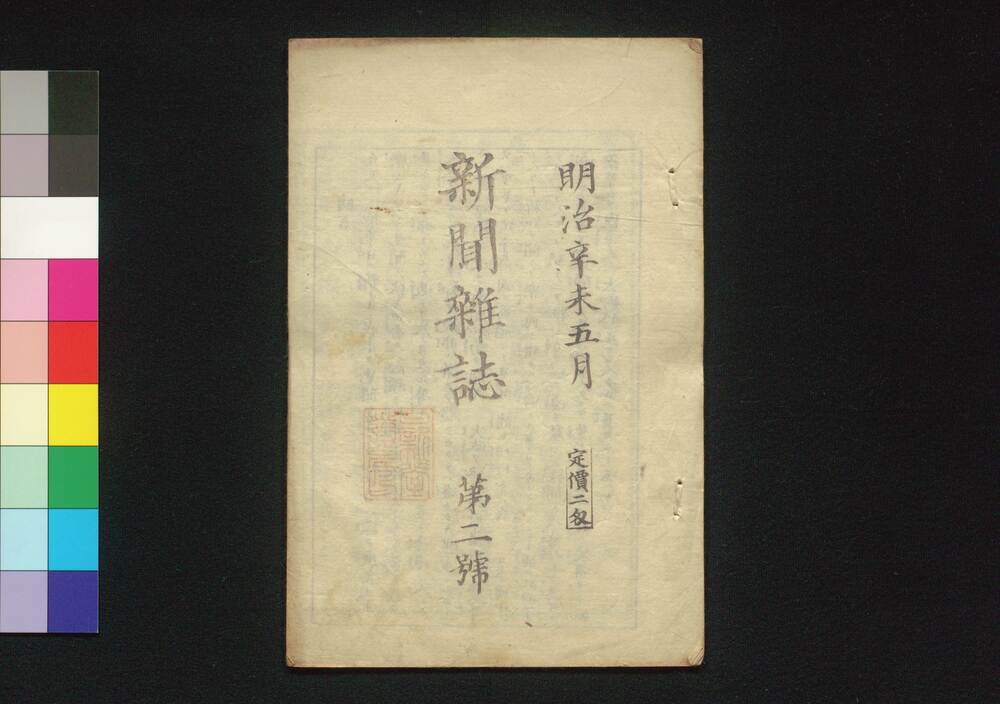 明治辛未五月
定價二匁
新聞雜誌
第二號